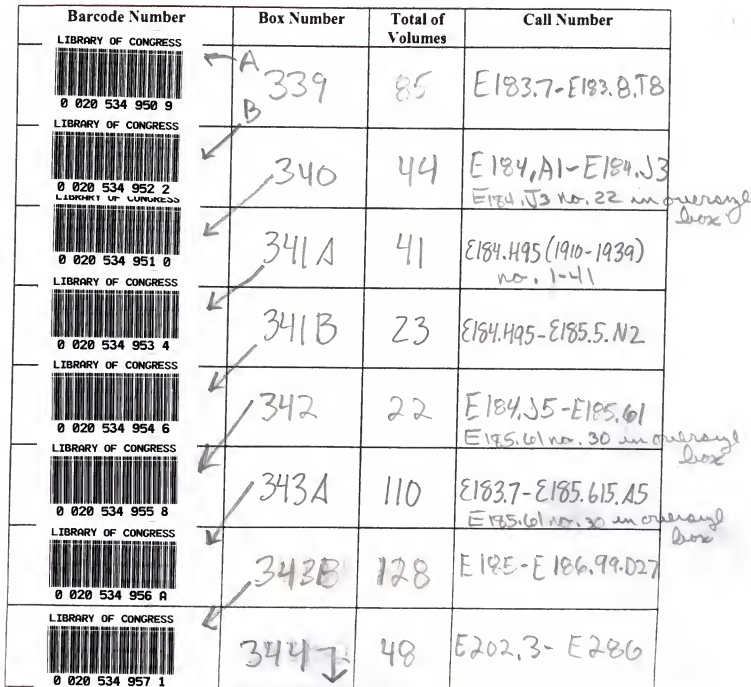 Barcode Number Box Number Total of Volumes Call Number
LIBRARY OF CONGRESS
0 020 534 950 9
A
B
339 85 E183.7-E183.8.T8
LIBRARY OF CONGRESS
0 020 534 952 2
340 44 E184.A1-E184.J3
E184.J3 no. 22 in oversize box
LIBRARY OF CONGRESS
0 020 534 951 0
341A 41 E184.H95 (1910-1939)
no. 1-41
LIBRARY OF CONGRESS
0 020 534 953 4
341B 23 E184.H95-E185.5.N2
LIBRARY OF CONGRESS
0 020 534 954 6
342 22 E184.J5-E185.61
E185.61 no. 30 in oversize box
LIBRARY OF CONGRESS
0 020 534 955 8
343A 110 E183.7-E185.615.A5
E185.61 no. 30 in oversize box
LIBRARY OF CONGRESS
0 020 534 956 A
343B 128 E185-E186.99.D27
LIBRARY OF CONGRESS
0 020 534 957 1
344 48 E202.3-E286